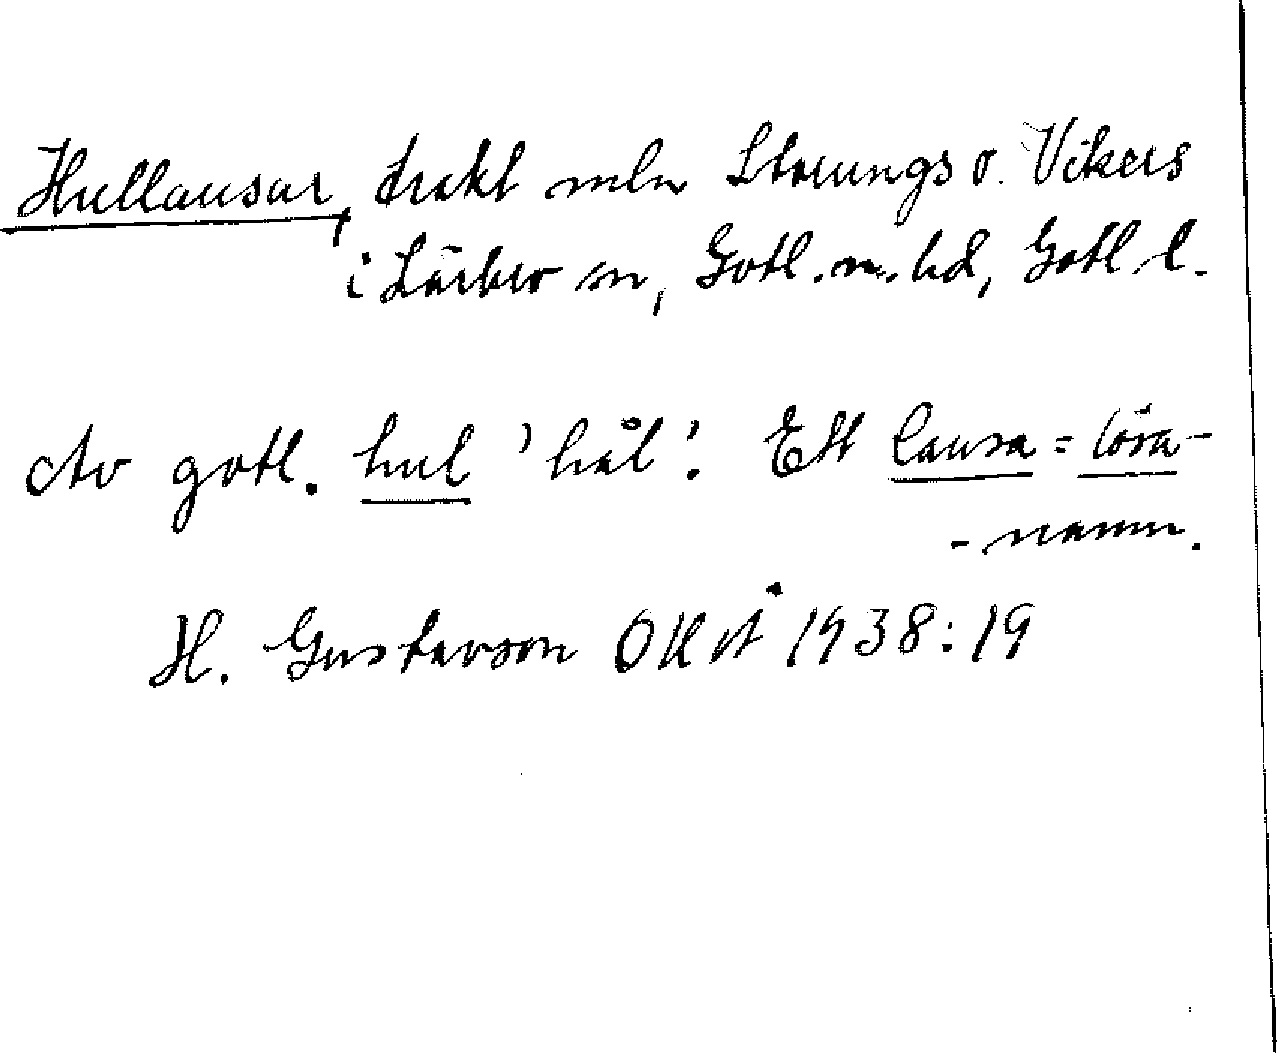 Hullausar, trakt mln Storungs o. Vikers
i Lärbro sn, Gotl. n. hd, Gotl l.
Av gotl. hul 'hål'. Ett lausa = lösa-
-namn.
H. Gustavson OUÅ 1938:19